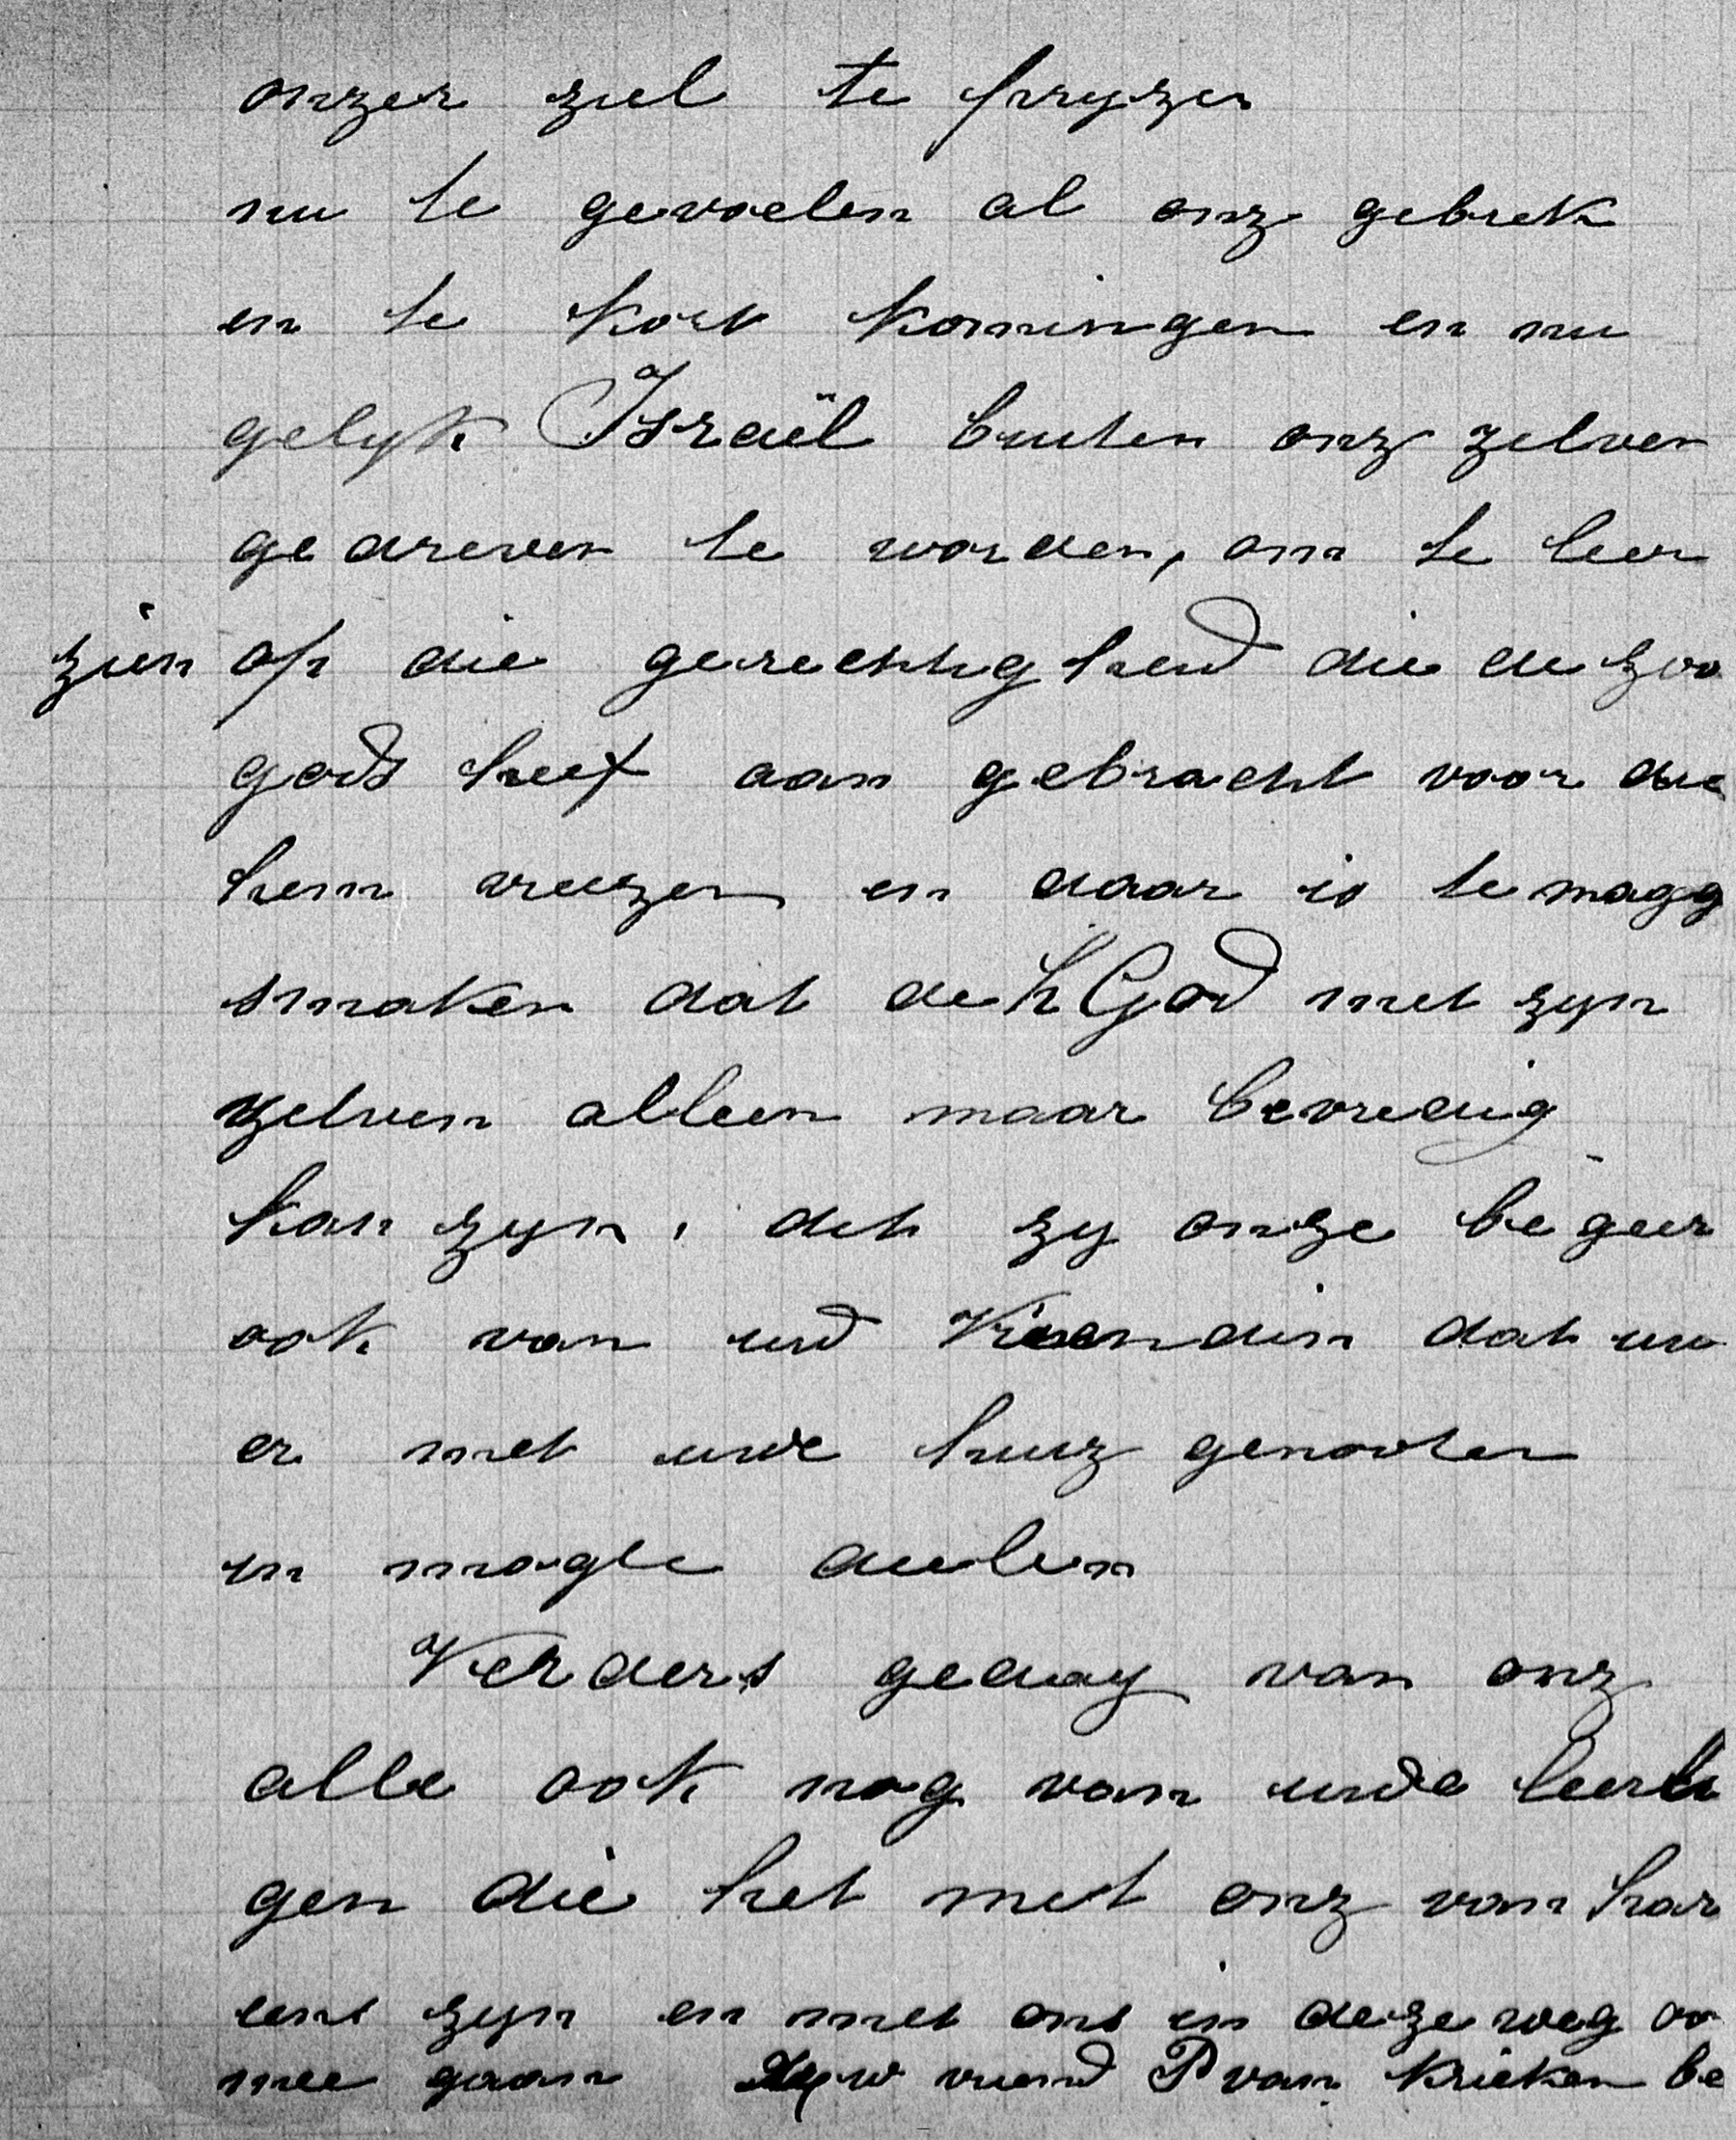 onzer ziel te pryzen
nu te gevoelen al onz gebrek
en te kort komingen en nu
gelyk Israël buiten onz zelven
gedreven te worden, om te leer
zien op die gerechtigheid die de zoo
gods heef aan gebracht voor die
hem vreezen en daar is te mogg
smaken dat de h God met zyn
zelven alleen maar bevredig
kan zyn, dit zy onze begeer
ook van uw vriendin dat uw
er met uwe huiz genooten
in mogte deelen
Verders gedag van onz
alle ook nog van uwe leerli
gen die het met onz van har
eens zyn en met ons in deze weg oo
mee gaan uw vriend P van Krieken be